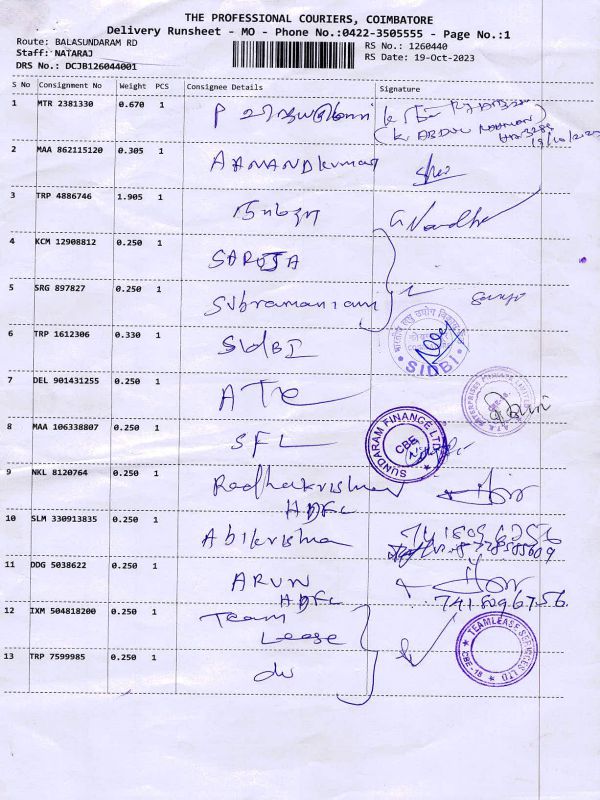 THE PROFESSIONAL COURIERS, COIMBATORE
Delivery Runsheet - MO - Phone No.:0422-3505555 - Page No.:1
Route: BALASUNDARAM RD
Staff: NATARAJ
DRS No.: DCJB126044001
RS No.: 1260440
RS Date: 19-Oct-2023
S No Consignment No Weight PCS Consignee Details Signature
1 MTR 2381330 0.670 1 P
(K. ABDUL
19/10/202
2 MAA 862115120 0.305 1 AANANDkumar
3 TRP 4886746 1.905 1 G. Nandha
4 KCM 12908812 0.250 1 SAROJA
5 SRG 897827 0.250 1 Subramaniam
6 TRP 1612306 0.330 1 SIdBI
SIDBI
7 DEL 901431255 0.250 1 ATE
8 MAA 106338807 0.250 1 SFL
SUNDARAM FINANCE LTD
CBE
9 NKL 8120764 0.250 1 Radhakrishnan
HDFC
10 SLM 330913835 0.250 1 Abikrishna
11 DDG 5038622 0.250 1 ARUN
HDFC
7418096756
12 IXM 504818200 0.250 1 Team
Lease
TEAMLEASE SERVICES LTD
CBE-18
13 TRP 7599985 0.250 1 do